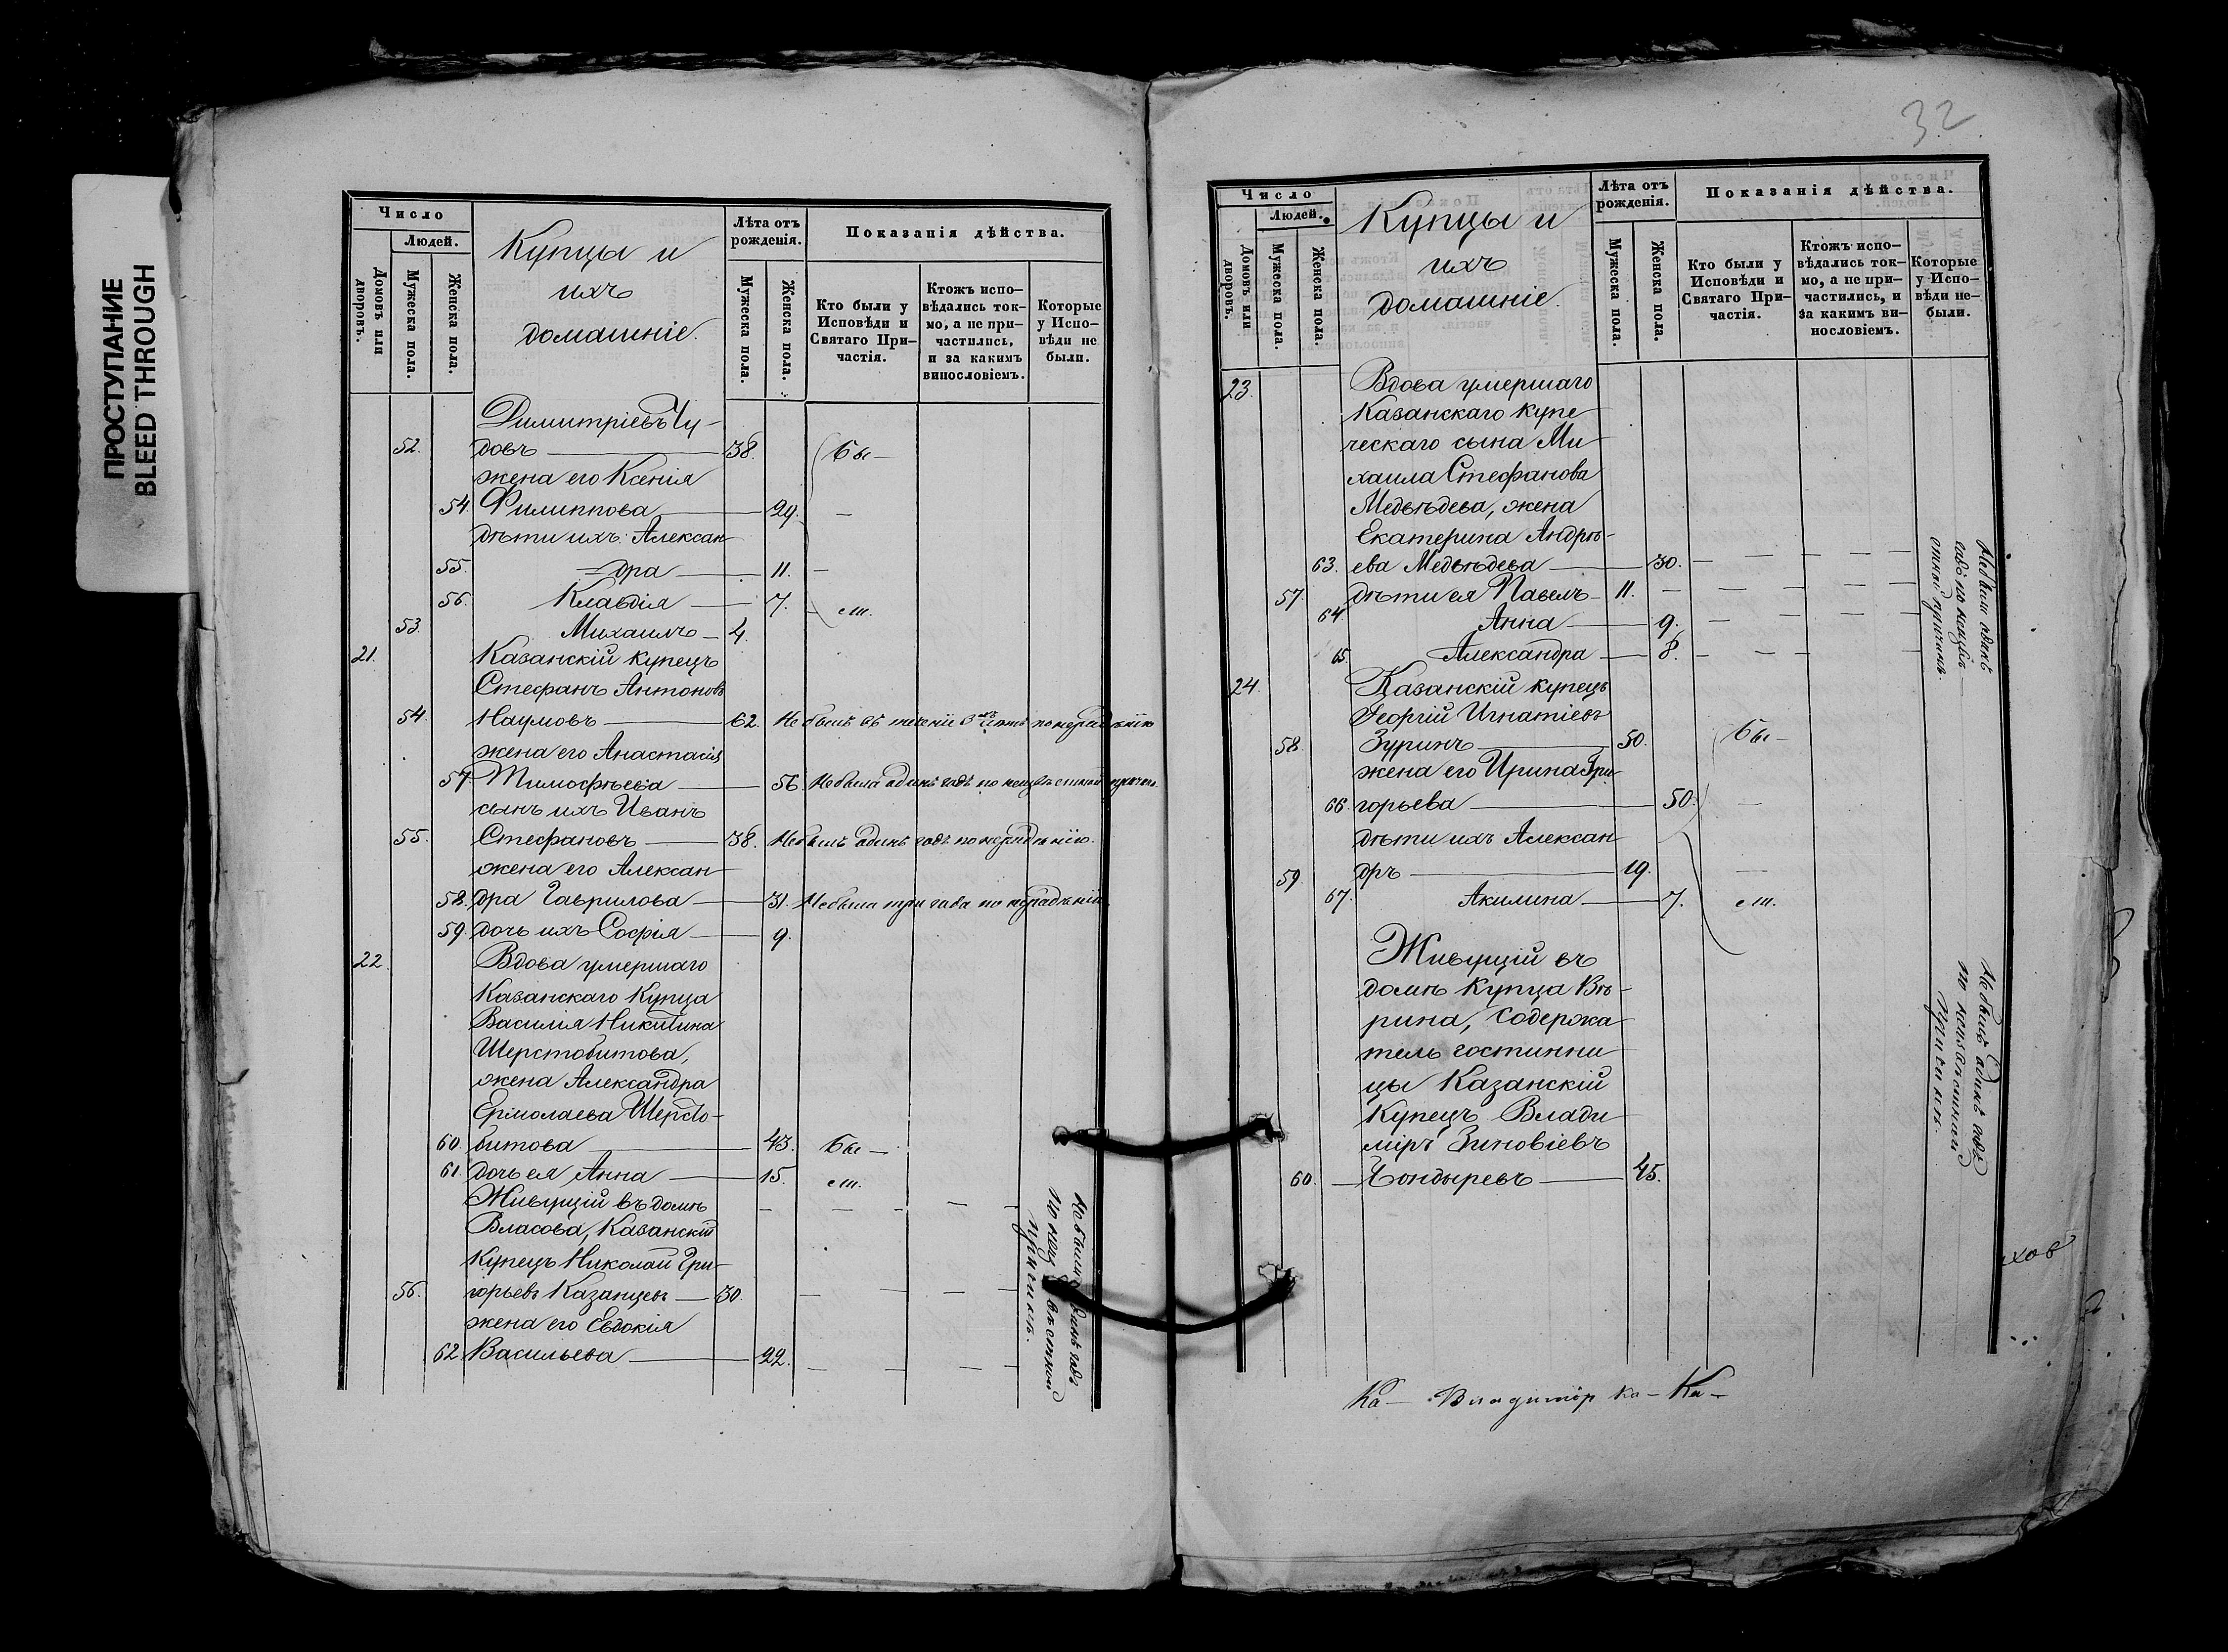 ПРОСТУПАНИЕ
BLEED THROUGH
Число
Людей.
Домовъ или дворовъ.
Мужеска пола.
Женска пола.
Купцы и
ихъ
домашніе.
Лѣта отъ рожденія.
Мужеска пола.
Женска пола.
Показанія дѣйства.
Кто были у Исповѣди и Святаго При-частія.
Ктожъ испо-вѣдались ток-мо, а не при-частились, и за какимъ винословіемъ.
Которые у Испо-вѣди не были.
Димитріевъ Чу-
52. довъ — 38. Бы —
жена его Ксенія
54. Филиппова — 29. —
дѣти ихъ: Алексан-
55. дра — 11. —
56. Клавдія — 7. ст.
53. Михаилъ — 4.
21. Казанскій купецъ
Стефанъ Антоновъ
54. Наумовъ — 62. Не былъ въ теченіи 3 лѣтъ по нерадѣнію
жена его Анастасія
57. Тимофѣева — 56. Не была одинъ годъ по неизвѣстной причин.
сынъ ихъ Иванъ
55. Стефановъ — 38. Не былъ одинъ годъ по нерадѣнію.
жена его Алексан-
58. дра Гаврилова — 31. Не была три года по нерадѣнію.
59. дочь ихъ Софія — 9.
22. Вдова умершаго
Казанскаго Купца
Василія Никитина
Шерстобитова,
жена Александра
Ермолаева Шерсто-
60. битова — 43. Бы —
61. дочь ея Анна — 15. ст.
Живущій въ домѣ
Власова, Казанскій
Купецъ Николай Гри-
56. горьевъ Казанцевъ — 30.
жена его Евдокія
62. Васильева — 22.
Не были одинъ годъ
по неизвѣстной
причинѣ.
32
Число
Людей.
Домовъ или дворовъ.
Мужеска пола.
Женска пола.
Купцы и
ихъ
домашніе.
Лѣта отъ рожденія.
Мужеска пола.
Женска пола.
Показанія дѣйства.
Кто были у Исповѣди и Святаго При-частія.
Ктожъ испо-вѣдались ток-мо, а не при-частились, и за какимъ ви-нословіемъ.
Которые у Испо-вѣди не-были.
23. Вдова умершаго
Казанскаго купе-
ческаго сына Ми-
хаила Стефанова
Медвѣдева, жена
Екатерина Андрѣ-
63. ева Медвѣдева — 30. —
57. дѣти ея Павелъ — 11. —
64. Анна — 9. —
65. Александра — 8. —
Не были одинъ
годъ по неизвѣ-
стной причинѣ
24. Казанскій купецъ
Георгій Игнатіевъ
58. Зуринъ — 50. Бы —
жена его Ирина Гри-
66. горьева — 50. —
дѣти ихъ Алексан-
59. дръ — 19. —
67. Акилина — 7. ст.
Живущій въ
домѣ Купца Вѣ-
рина, содержа-
тель гостинни-
цы Казанскій
Купецъ Влади-
міръ Зиновіевъ
60. — Чондыревъ — 45.
Не былъ Одинъ годъ
по неизвѣстной
причинѣ.
ховъ
Ка — Владиміръ Ка — Ка —